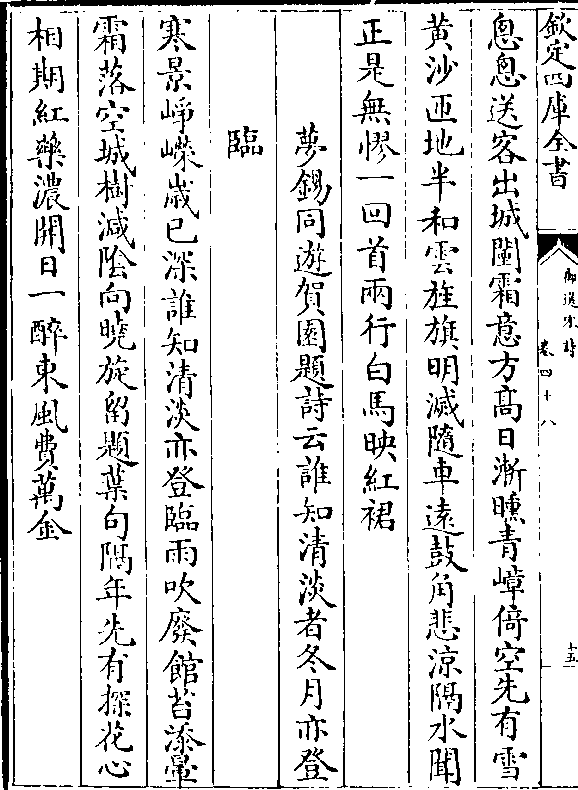 欽定四庫全書
御選宋詩
卷四十八
十五
悤悤送客出城闉霜意方髙日漸曛青嶂倚空先有雪
黄沙匝地半和雲旌旗明滅隨車遠鼓角悲涼隔水聞
正是無憀一回首兩行白馬映紅裙
夢錫同遊賀園題詩云誰知清淡者冬月亦登
臨
寒景峥嶸歲已深誰知清淡亦登臨雨吹廢館苔添暈
霜落空城樹減隂向曉旋留題葉句隔年先有探花心
相期紅藥濃開日一醉東風費萬金